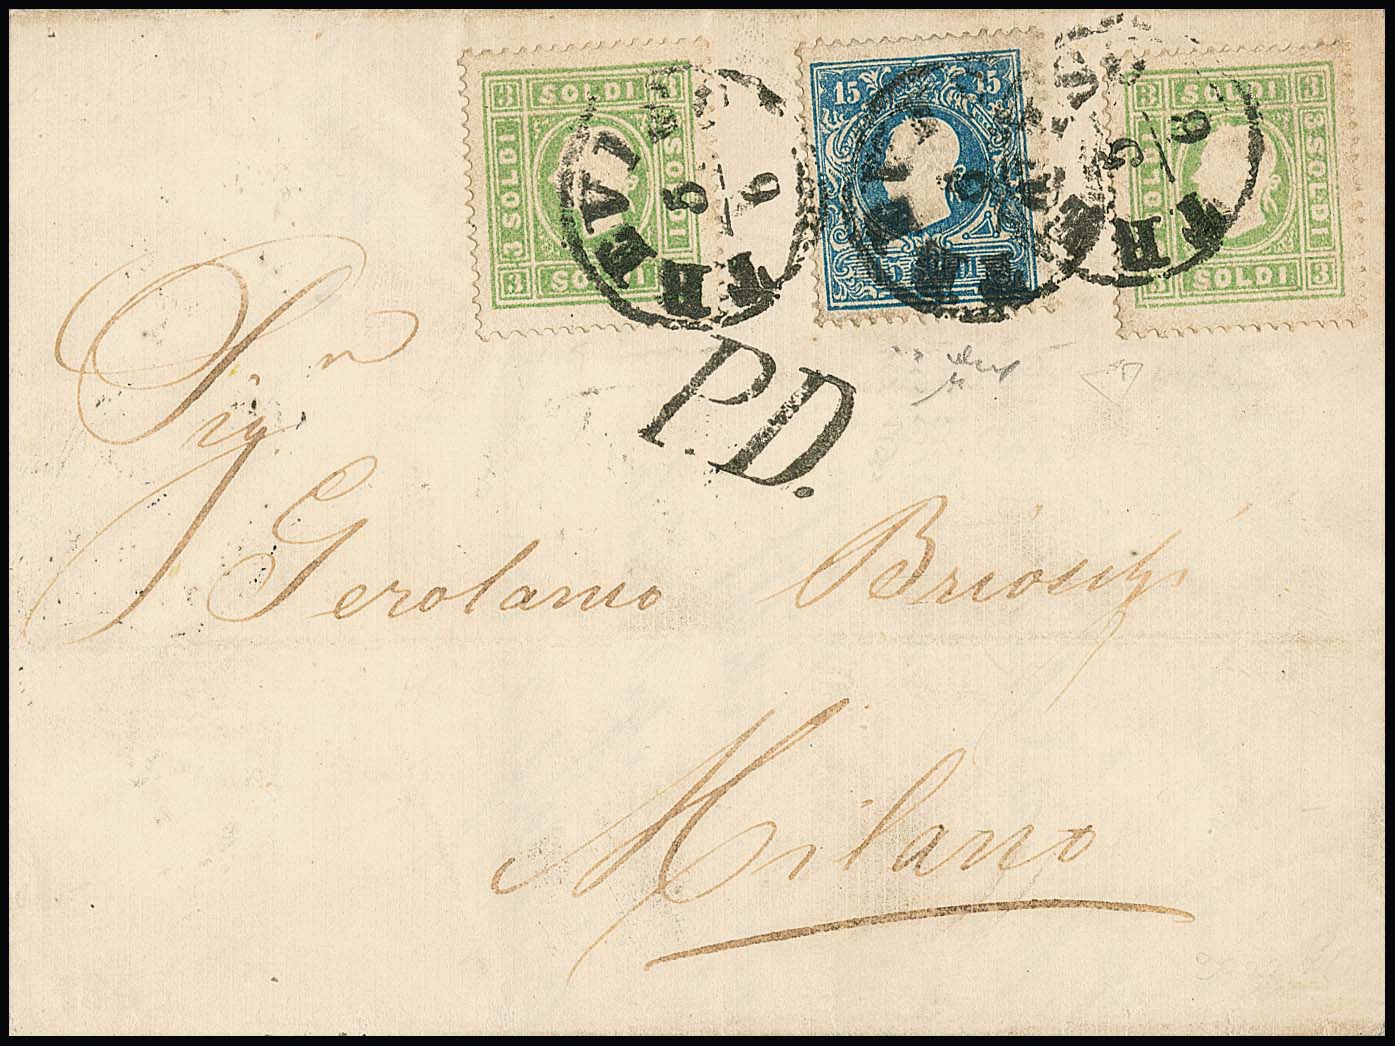 3 SOLDI 3
3 SOLDI
SOLDI
3 SOLDI
15 15
3 SOLDI 3
SOLDI
3 SOLDI
3 SOLDI 3
TREVI
9
6
TRE
TR
9
P.D.
Sigⁿ
Gerolamo Brioschi
Milano